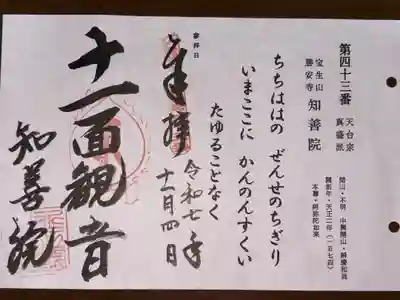 第四十三番
天台宗
真盛派
宝生山
勝安寺
知善院
開山・不明
中興開山・舜慶和尚
開創年・天正二年（一五七四）
本尊・阿弥陀如来
ちちははの ぜんせのちぎり
いまここに かんのんすくい
たゆることなく
参拝日
奉拝
令和七年
十一月四日
十一面観音
知善院